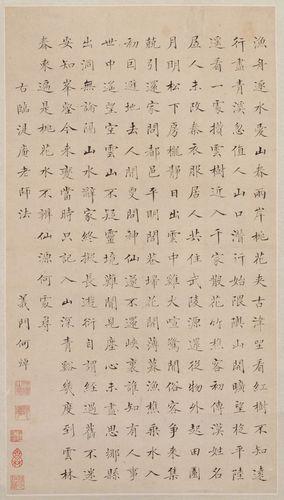 漁舟逐水愛山春兩岸桃花夾古津坐看紅樹不知遠
行盡青溪忽值人山口潛行始隈隩山開曠望旋平陸
遙看一處攢雲樹近入千家散花竹樵客初傳漢姓名
居人未改秦衣服居人共住武陵源還從物外起田園
月明松下房櫳靜日出雲中雞犬喧驚聞俗客爭來集
競引還家問都邑平明閭巷埽花開薄暮漁樵乘水入
初因避地去人間更問神仙遂不還峽裏誰知有人事
世中遙望空雲山不疑靈境難聞見塵心未盡思鄉縣
出洞無論隔山水辭家終擬長遊衍自謂經過舊不迷
安知峯壑今來變當時只記入山深青谿幾度到雲林
春來遍是桃花水不辨仙源何處尋
右臨湜庵老師法
義門何焯